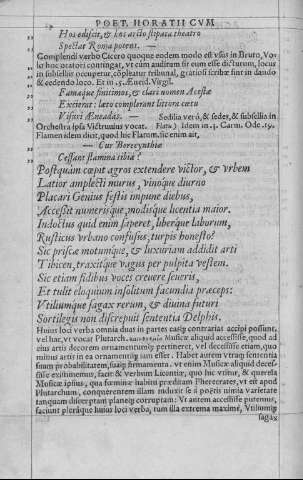 POET. HORATII CVM
Hos ediscit, & hos arcto stipata theatro
Spectat Roma potens. —
Complendi verbo Cicero quoque eodem modo est vsus in Bruto, Vo-
lo hoc oratori contingat, vt cum auditum sit eum esse dicturum, locus
in subselliis occupetur, cōpleatur tribunal, gratiosi scribæ sint in dando
& cedendo loco. Et in 5. Aeneid. Virgil.
Famaque finitimos, & clari nomen Acestæ
Excierat: læto complerant littora cœtu
Visuri Æneadas. — Sedilia verò, & sedes, & subsellia in
Orchestra ipsa Victruuius vocat. Idem in 3. Carm. Ode. 19.
Flamen idem dixit, quod hic Flatum, sic enim ait,
— Cur Berecynthiæ
Cessant flamina tibiæ?
Postquàm cœpit agros extendere victor, & vrbem
Latior amplecti murus, vinóque diurno
Placari Genius festis impune diebus,
Accessit numerisque, modisque licentia maior.
Indoctus quid enim saperet, liberque laborum,
Rusticus vrbano confusus, turpis honesto?
Sic priscæ motumque, & luxuriam addidit arti
Tibicen, traxitque vagus per pulpita vestem.
Sic etiam fidibus voces creuere seueris,
Et tulit eloquium insolitum facundia præceps:
Vtiliumque sagax rerum, & diuina futuri
Sortilegis non discrepuit sententia Delphis.
Huius loci verba omnia duas in partes easq́; contrarias accipi possunt,
vel hac, vt vocat Plutarch. Musicæ aliquid accessisse, quod ad
eius artis decorem ornamentumq́; pertineret, vel decessisse etiam, quo
minus artis in ea ornamentúq́; iam esset. Habet autem vtraq́; sententia
suam probabilitatem, suaq́; firmamenta. vt enim Musicæ aliquid deces-
sisse existimemus, facit & verbum Licentiæ, quo hîc vtitur, & querela
Musicæ ipsius, qua fœminæ habitu præditam Pherecrates, vt est apud
Plutarchum, conquerentem illam induxit se à poëtis nimia varietate
tanquam disceptam planeq́; corruptam: Vt autem accessisse putemus,
faciunt pleráque huius loci verba, tum illa extrema maximè, Vtiliumq́;
sagax